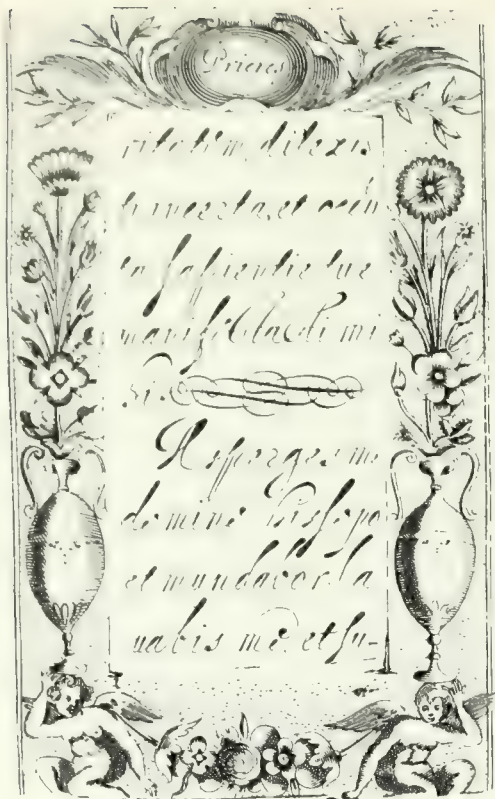 Prieres
ritatem dilexis
ti incerta, et ocul
ta sapientie tue
manifestasti mi
Asperges me
domine hissopo
et mundabor. la
uabis me. et su-